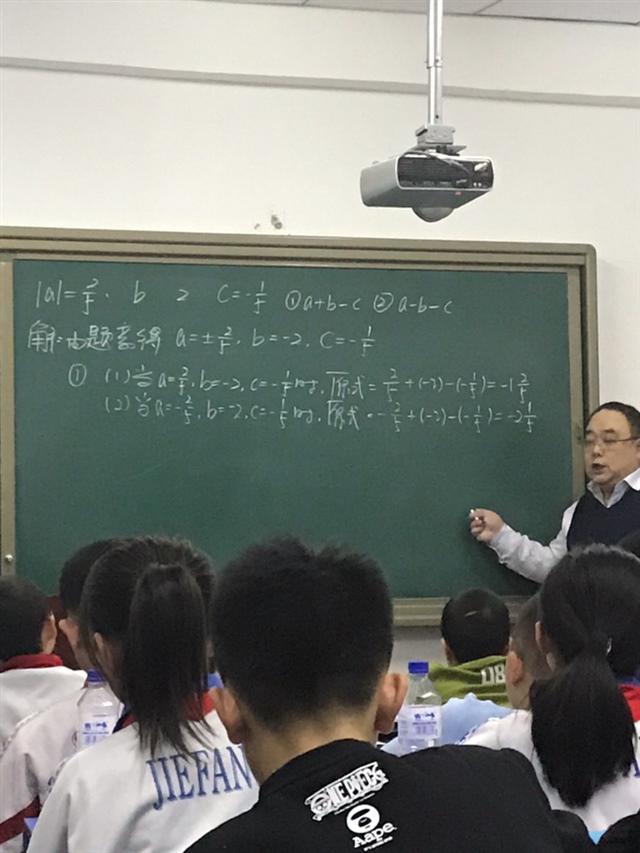 |a|=2/5. b 2 c=-1/5 ①a+b-c ②a-b-c
解:由题意得 a=±2/5, b=-2, c=-1/5
① (1)当a=2/5, b=-2, c=-1/5时, 原式=2/5+(-2)-(-1/5)=-1 2/5
(2)当a=-2/5, b=-2, c=-1/5时, 原式=-2/5+(-2)-(-1/5)=-2 1/5
JIEFAN
ONE PIECE
Aape